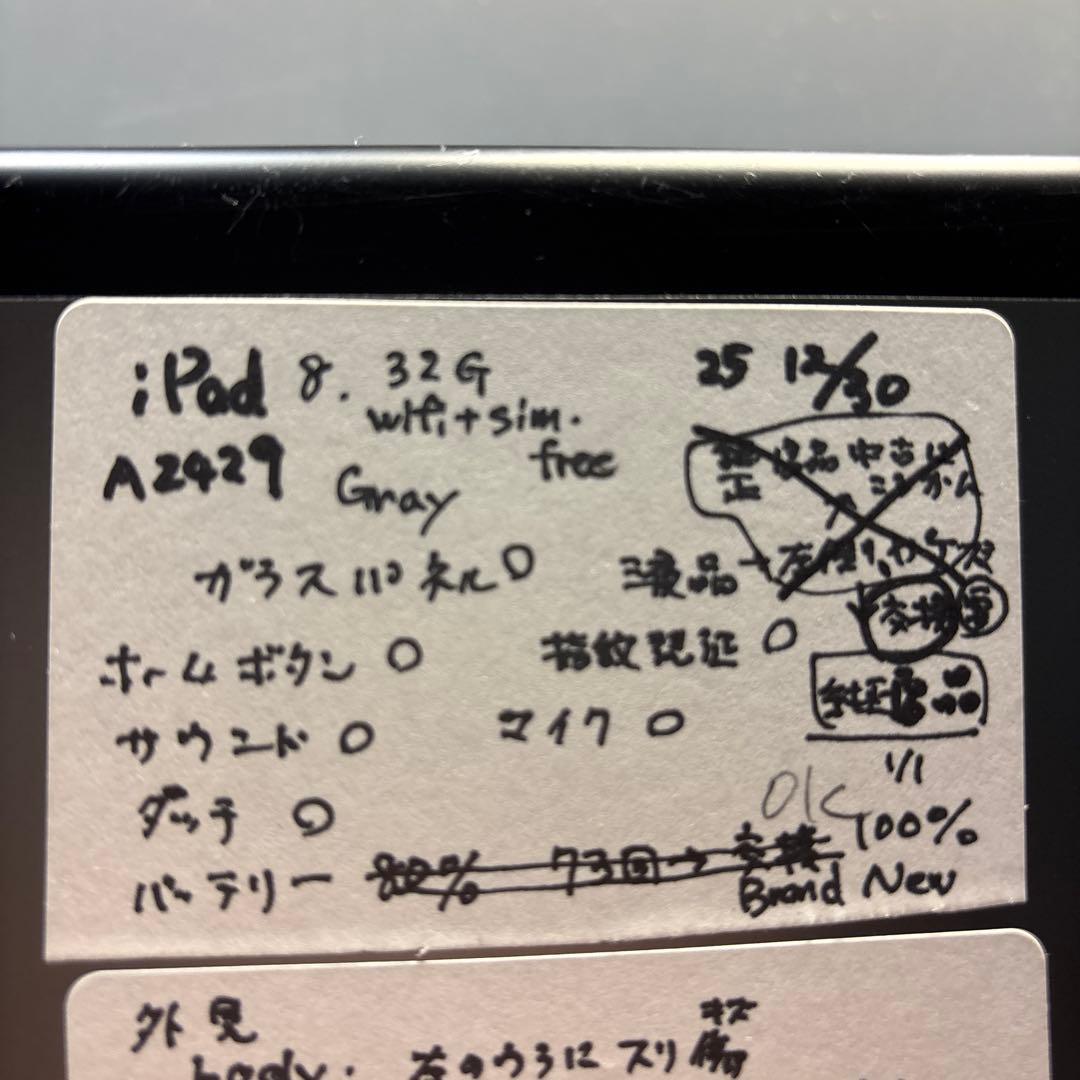 iPad 8. 32G
wifi + sim.
free
25 12/30
A2429 Gray
ガラスパネル○
液晶
ホームボタン ○
指紋認証 ○
交換
純正
品
サウンド ○
マイク ○
1/1
タッチ ○
OK
100%
バッテリー 80% 73回→交換
Brand New
外見 キズ
body. 左のうらにスリ傷